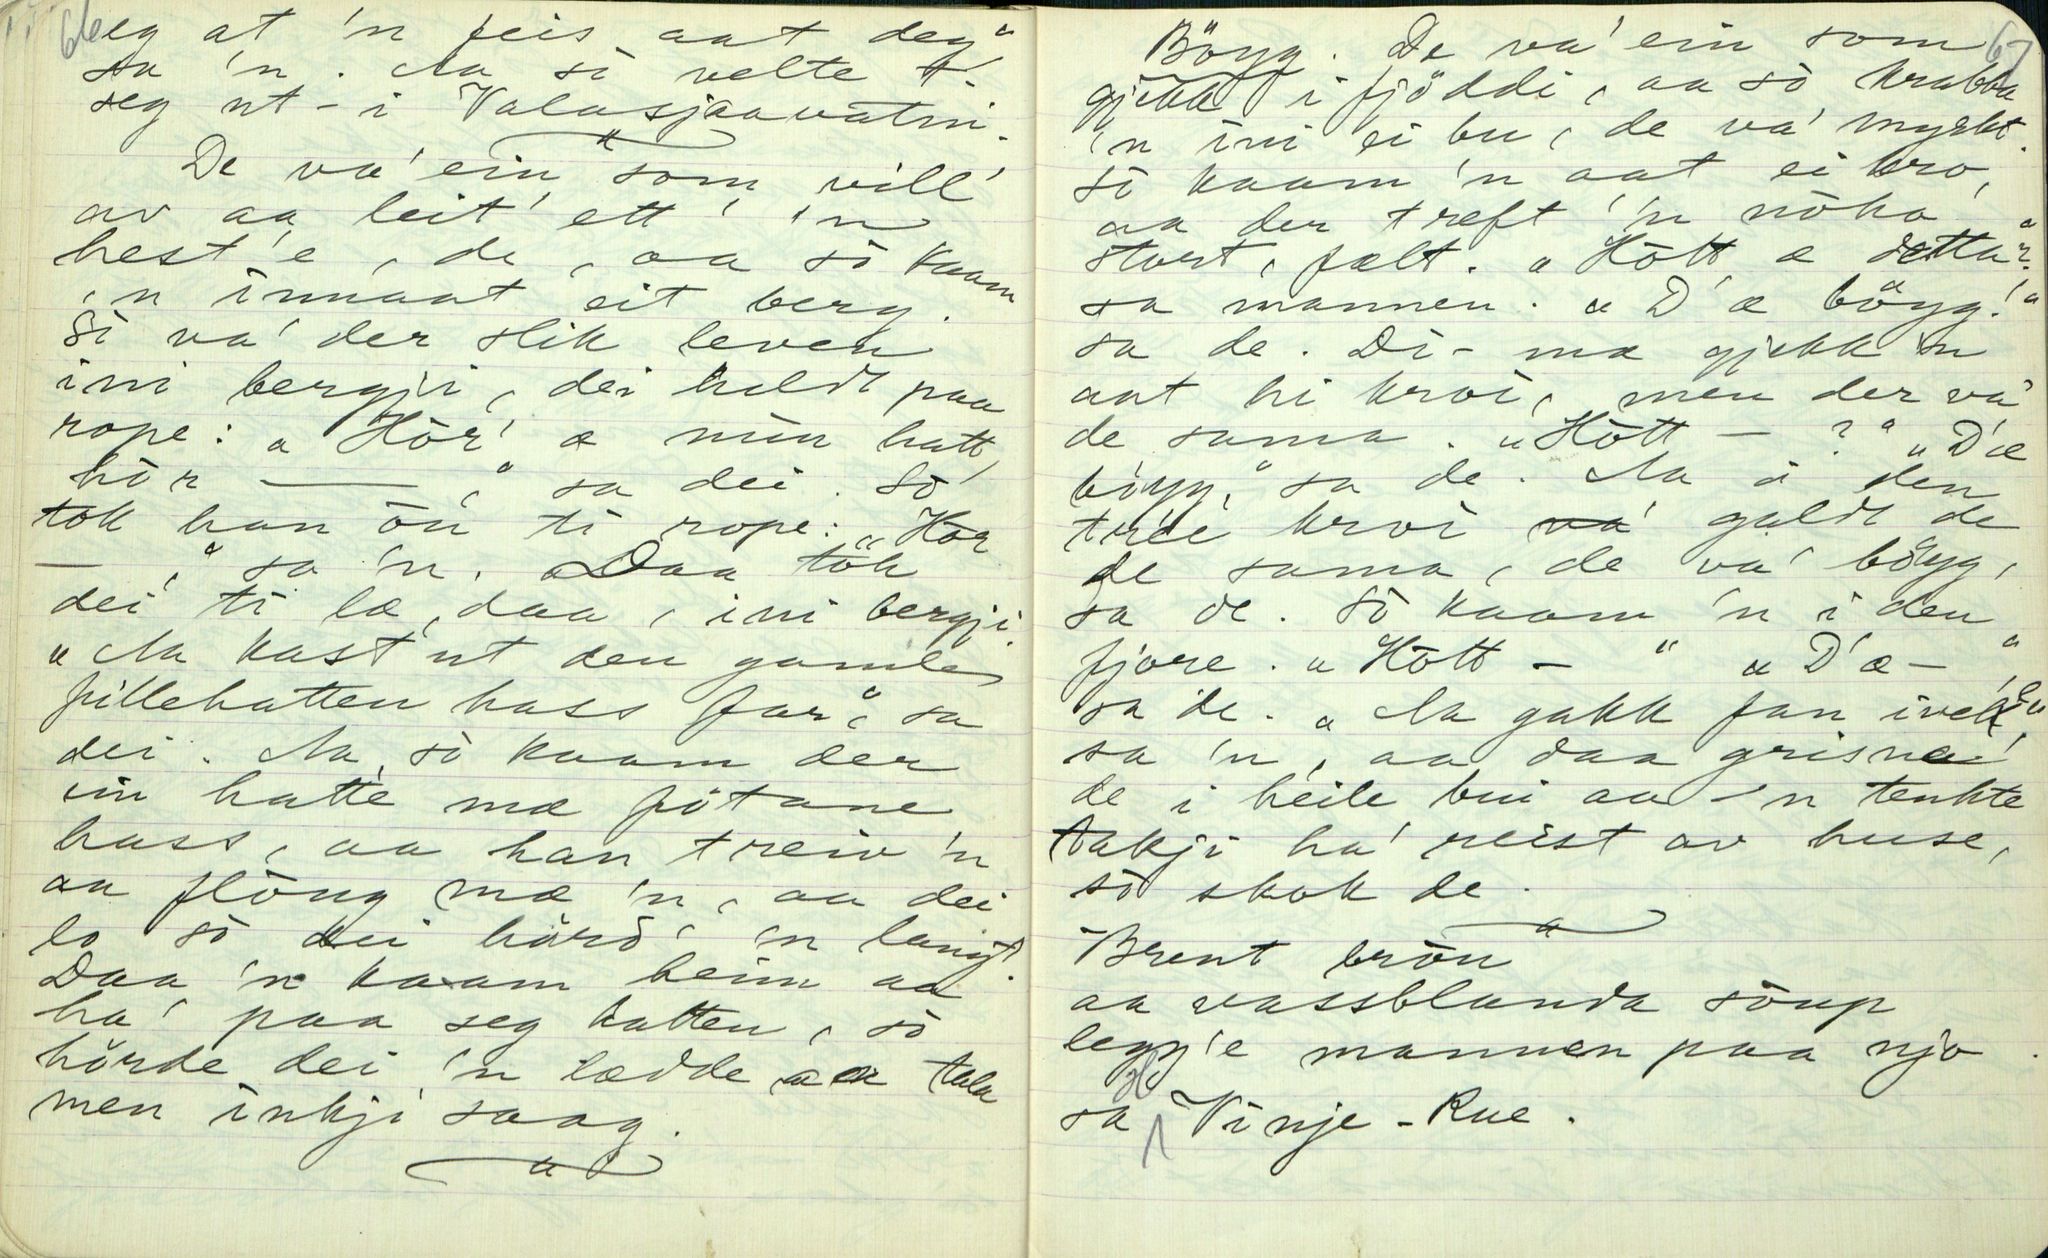 66
eg at 'n feis aat deg"
sa 'n. Aa sò velte
seg ut - i Valasjaavatni.
De va' ein som vill'
av aa leit' ett' 'n
hest'e, de, aa sò kaam
'n innaat eit berg.
Sò va' der slik leven
ini bergji, dei heldt paa
rope: "Hòr' æ min hatt,
hòr ——" sa dei. Sò
tok han òu ti rope: "Hòr
— ," sa 'n. Daa tòk
dei ti læ, daa, ini bergji.
"Aa kast ut den gamle
fillehatten hass far", sa
dei. Aa, sò kaam der
ein hatte mæ fòtane
hass, aa han treiv 'n
aa flòug mæ 'n, aa dei
lo sò dei hörd' 'n langt.
Daa 'n kaam heim aa
ha' paa seg hatten, sò
hörde dei 'n lædde aa tala
men inkji saag.
67
Böyg. De va' ein som
gjekk i fjöddi, aa sò krabba
'n ini ei bu, de va' myrkt.
sò kaam 'n aat ei kro,
aa der treft 'n nòko
stort, fælt. "Hòtt æ detta?"
sa mannen. "D'æ böyg!"
sa de. Di-mæ gjekk 'n
aat hi kroi, men der va'
de sama. "Hòtt — ?" "D'æ
böyg," sa de. Aa i den
triei kroi va' galdt de
de sama, de va' böyg,
sa de. Sò kaam 'n i den
fjore. "Hòtt — " "D'æ — "
sa de. "Aa gakk fan ivek!"
sa 'n, aa daa grisna'
de i heile bui aa 'n tenkte
takji ha' reist av huse,
sò skok de.
Brent bròu
aa vassblanda sòup
legg'e mannen paa njo
sa Vinje-Rue.